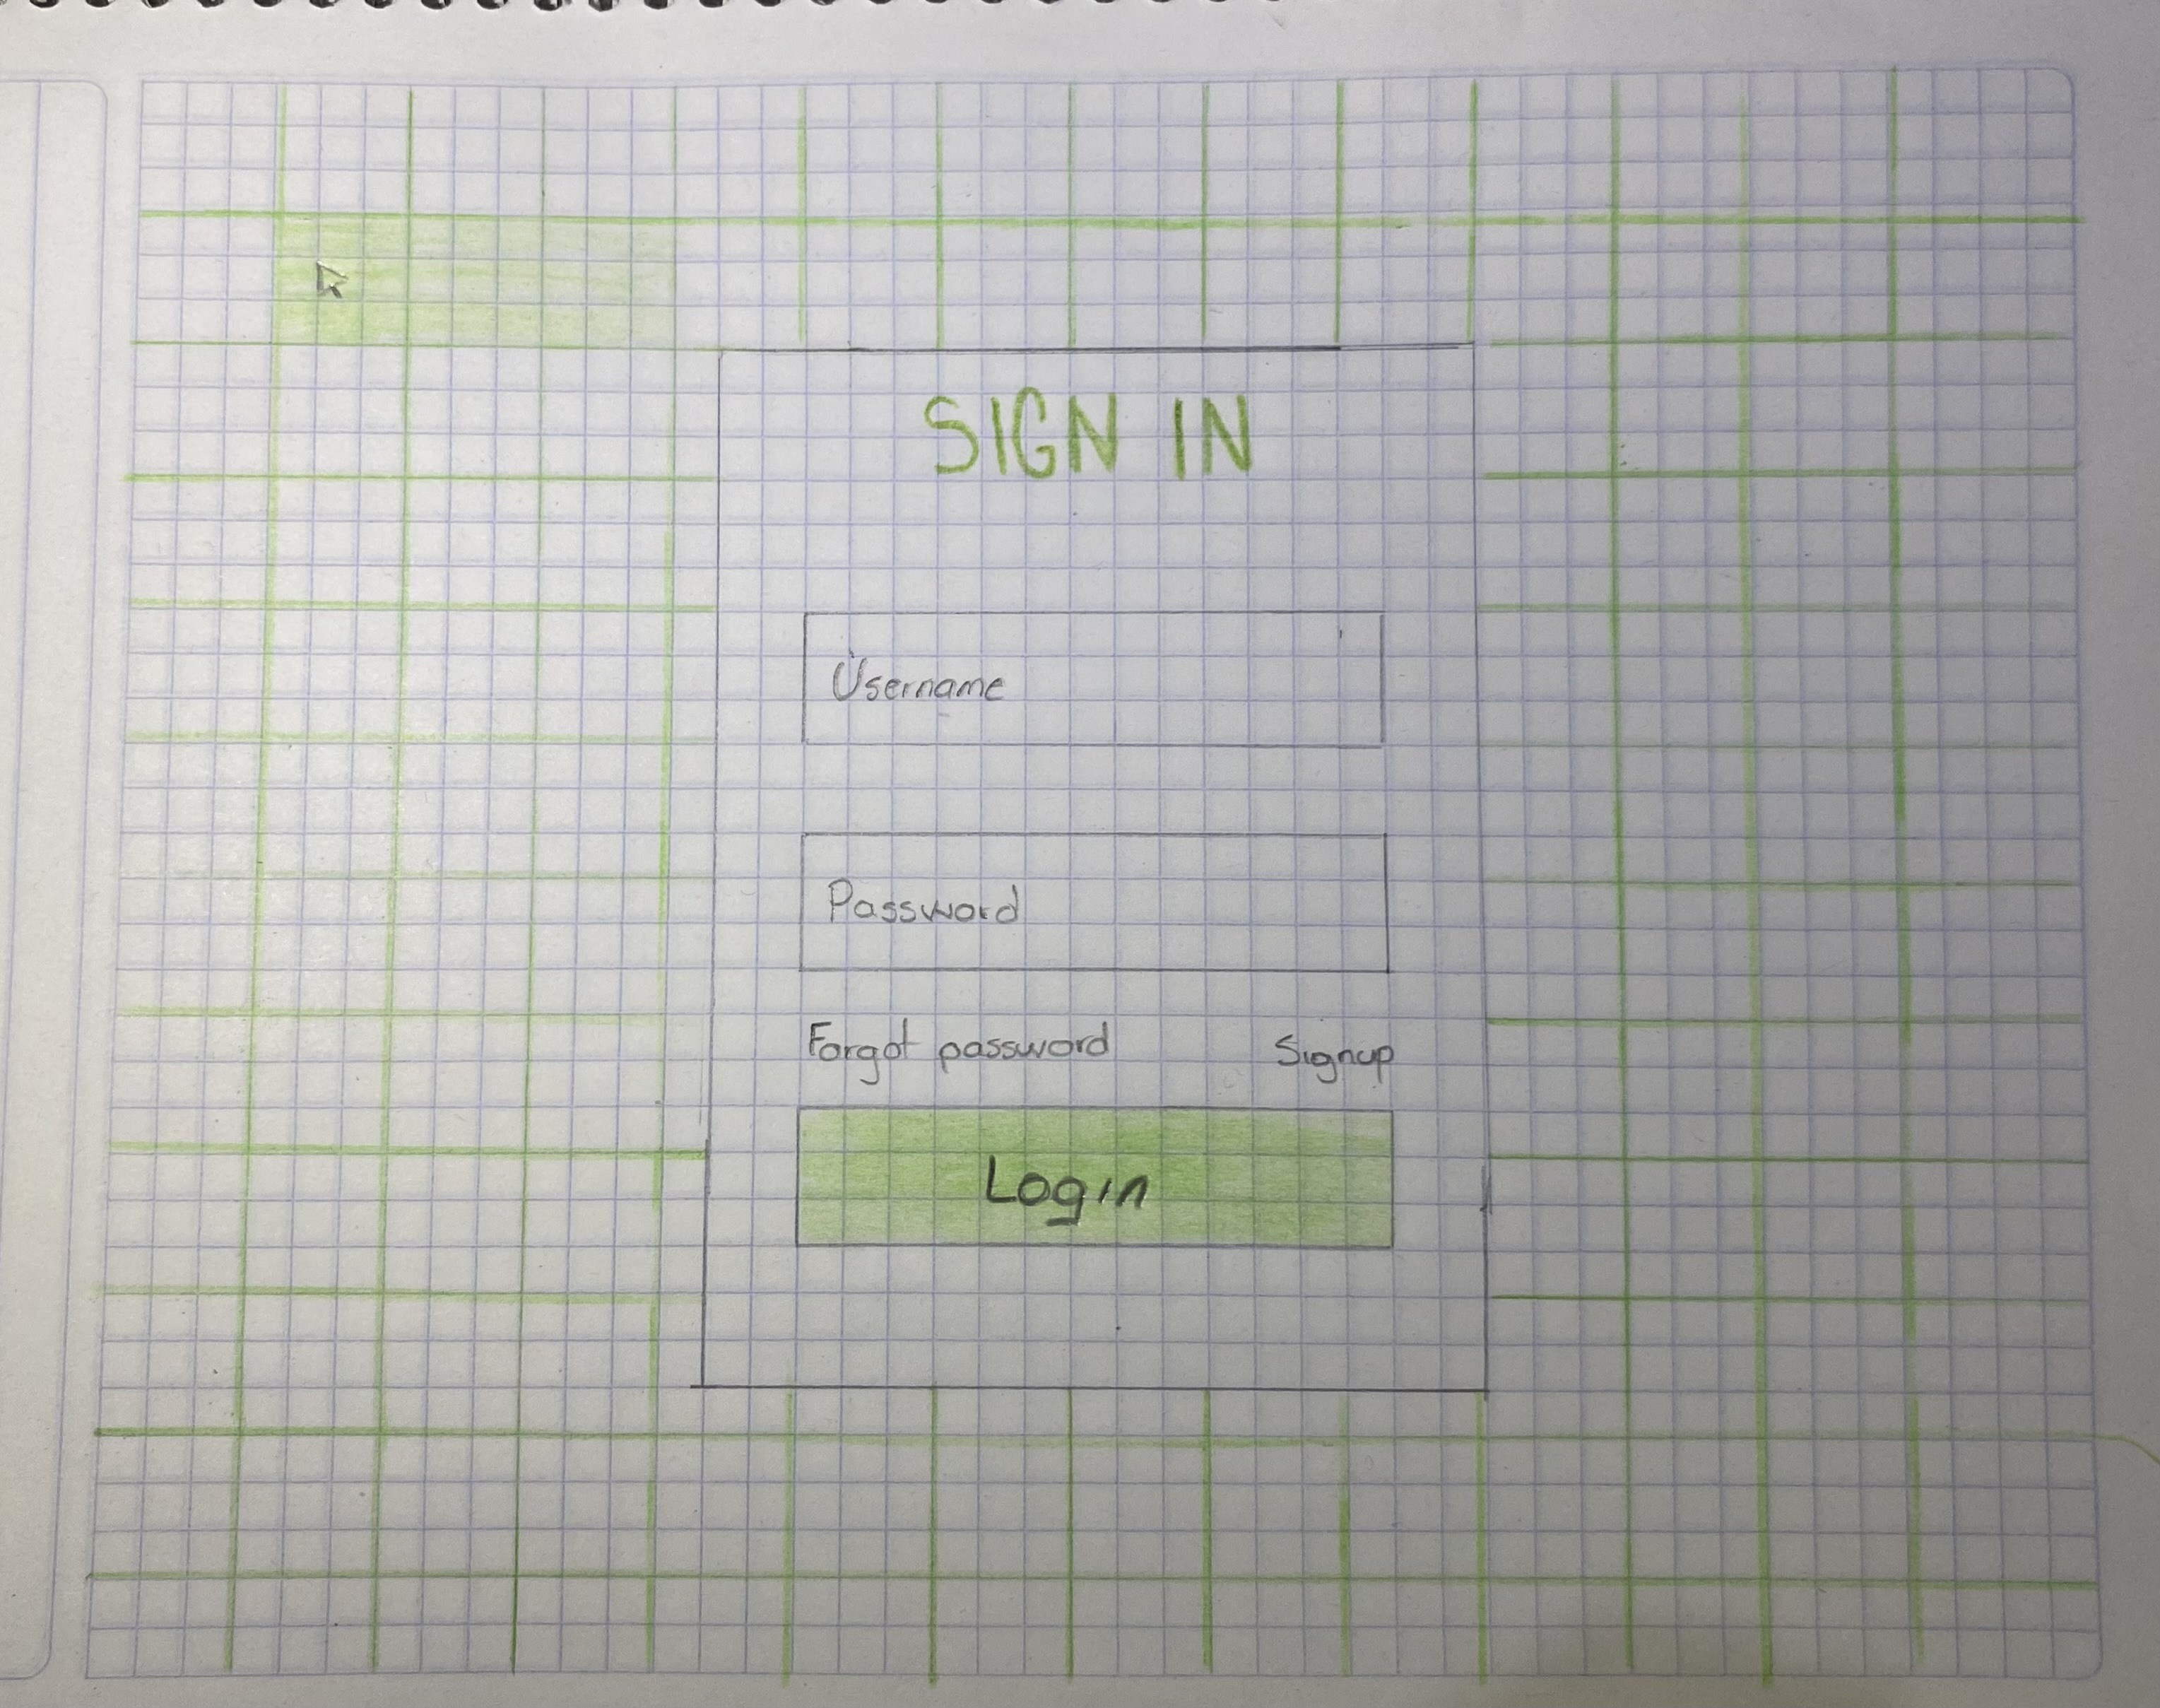 SIGN IN
Username
Password
Forgot password Signup
Login